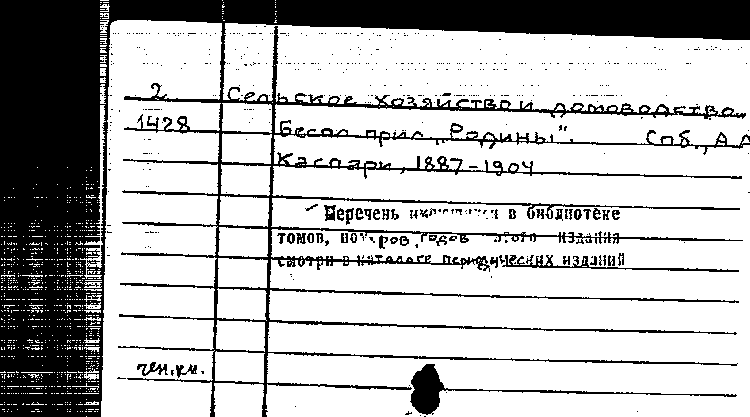 2 Сельское хозяйство и домоводство.
1428 Беспл. прил. „Родины". Спб., А.А
Каспари, 1887-1904
Перечень имеющихся в библиотеке
томов, номеров, годов этого издания
смотри в каталоге периодических изданий
чен.кн.